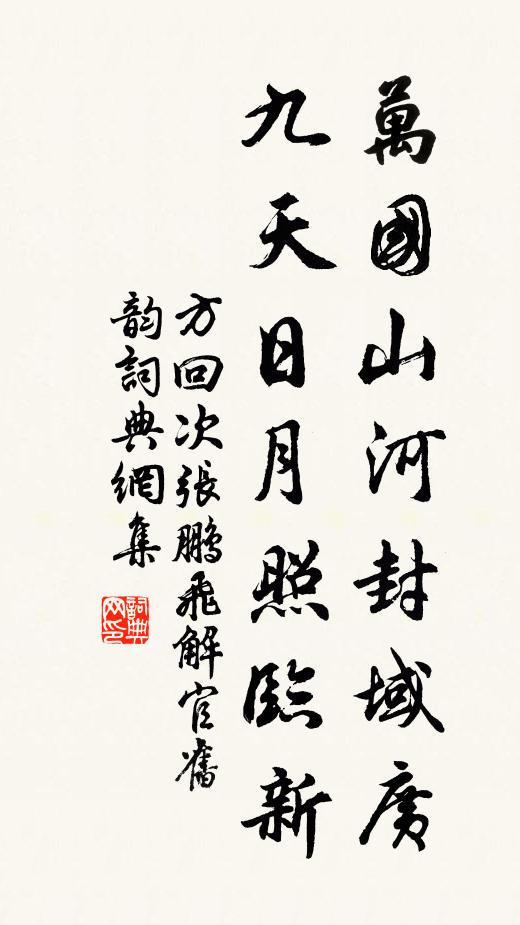 萬國山河封域廣
九天日月照臨新
方回次張鵬飛解官舊
韵詞典網集
詞典
网印